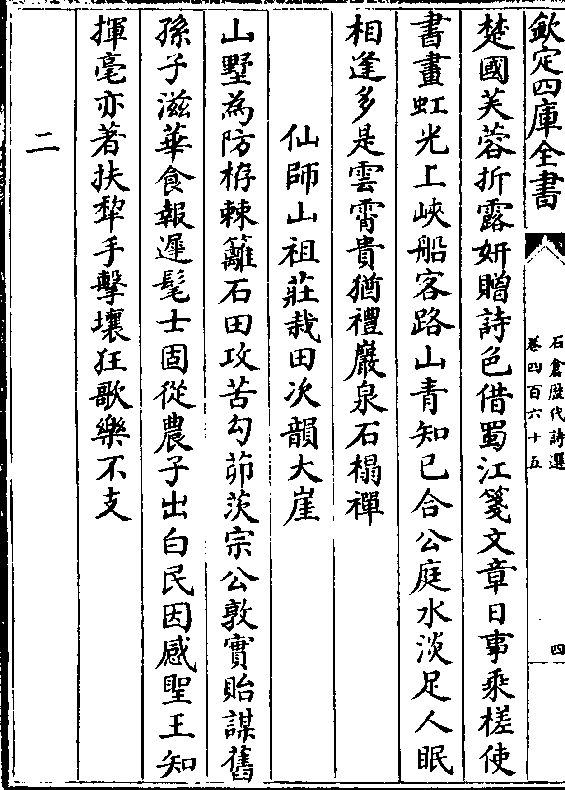 欽定四庫全書
石倉歴代詩選
卷四百六十五
四
楚國芙蓉折露妍贈詩色借蜀江箋文章日事乘槎使
書畫虹光上峽船客路山青知已合公庭水淡足人眠
相逢多是雲霄貴猶禮巖泉石榻禪
仙師山祖莊栽田次韻大崖
山墅為防栫棘籬石田攻苦勾茆茨宗公敦實貽謀舊
孫子滋華食報遲髦士固從農子出白民因感聖王知
揮毫亦著扶犂手擊壤狂歌樂不支
二